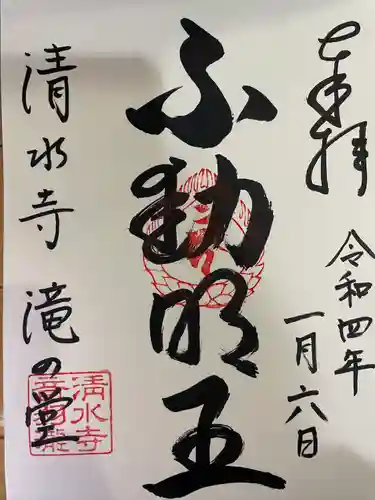 奉拝
令和四年
一月六日
不動明王
清水寺 滝の堂
清水寺
音羽龍